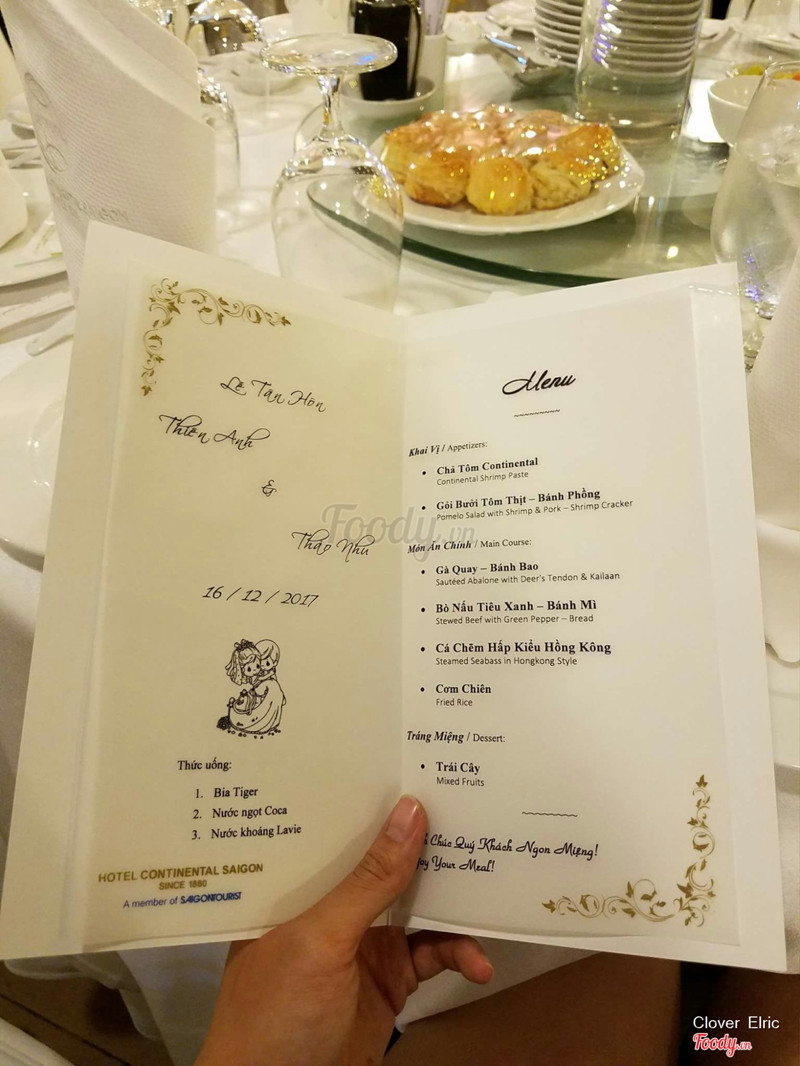 Lễ Tân Hôn
Thiên Anh
&
Thảo Như
16 / 12 / 2017
Thức uống:
1. Bia Tiger
2. Nước ngọt Coca
3. Nước khoáng Lavie
HOTEL CONTINENTAL SAIGON
SINCE 1880
A member of SAIGONTOURIST
Menu
Khai Vị / Appetizers:
• Chả Tôm Continental
Continental Shrimp Paste
• Gỏi Bưởi Tôm Thịt – Bánh Phồng
Pomelo Salad with Shrimp & Pork – Shrimp Cracker
Món Ăn Chính / Main Course:
• Gà Quay – Bánh Bao
Sautéed Abalone with Deer's Tendon & Kailaan
• Bò Nấu Tiêu Xanh – Bánh Mì
Stewed Beef with Green Pepper – Bread
• Cá Chẽm Hấp Kiểu Hồng Kông
Steamed Seabass in Hongkong Style
• Cơm Chiên
Fried Rice
Tráng Miệng / Dessert:
• Trái Cây
Mixed Fruits
Chúc Quý Khách Ngon Miệng!
Your Meal!
Foody.vn
Clover Elric
Foody.vn